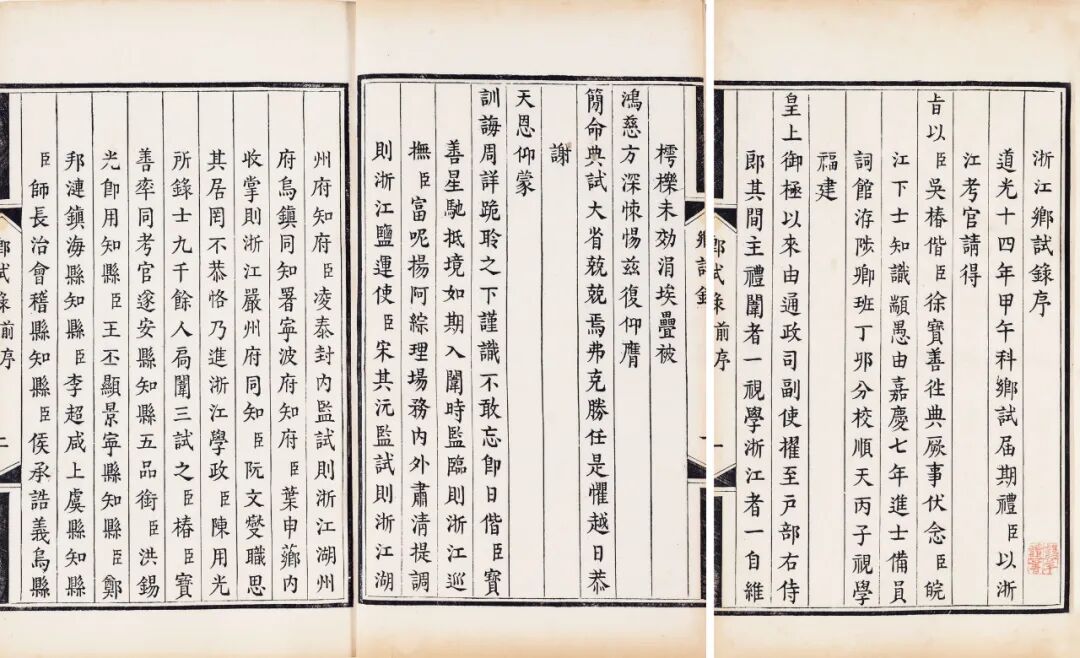 浙江鄉試錄序
道光十四年甲午科鄉試届期禮臣以浙
江考官請得
旨以臣吳椿偕臣徐寶善徃典厥事伏念臣皖
江下士知識顓愚由嘉慶七年進士備員
詞館洊陟卿班丁夘分校順天丙子視學
福建
皇上御極以來由通政司副使擢至戸部右侍
郎其間主禮闈者一視學浙江者一自維
鄉試錄前序
一
樗櫟未効涓埃疊被
鴻慈方深悚惕茲復仰膺
簡命典試大省兢兢焉弗克勝任是懼越日恭
謝
天恩仰蒙
訓誨周詳跪聆之下謹識不敢忘卽日偕臣寶
善星馳抵境如期入闈時監臨則浙江巡
撫臣富呢揚阿綜理場務内外肅清提調
則浙江鹽運使臣宋其沅監試則浙江湖
州府知府臣凌泰封内監試則浙江湖州
府烏鎮同知署寧波府知府臣葉申薌内
收掌則浙江嚴州府同知臣阮文燮職思
其居罔不恭恪乃進浙江學政臣陳用光
所錄士九千餘人局闈三試之臣椿臣寶
善率同考官遂安縣知縣五品銜臣洪錫
光卽用知縣臣王丕顯景寧縣知縣臣鄭
邦漣鎮海縣知縣臣李超咸上虞縣知縣
臣師長治會稽縣知縣臣侯承誥義烏縣
鄉試錄前序
二